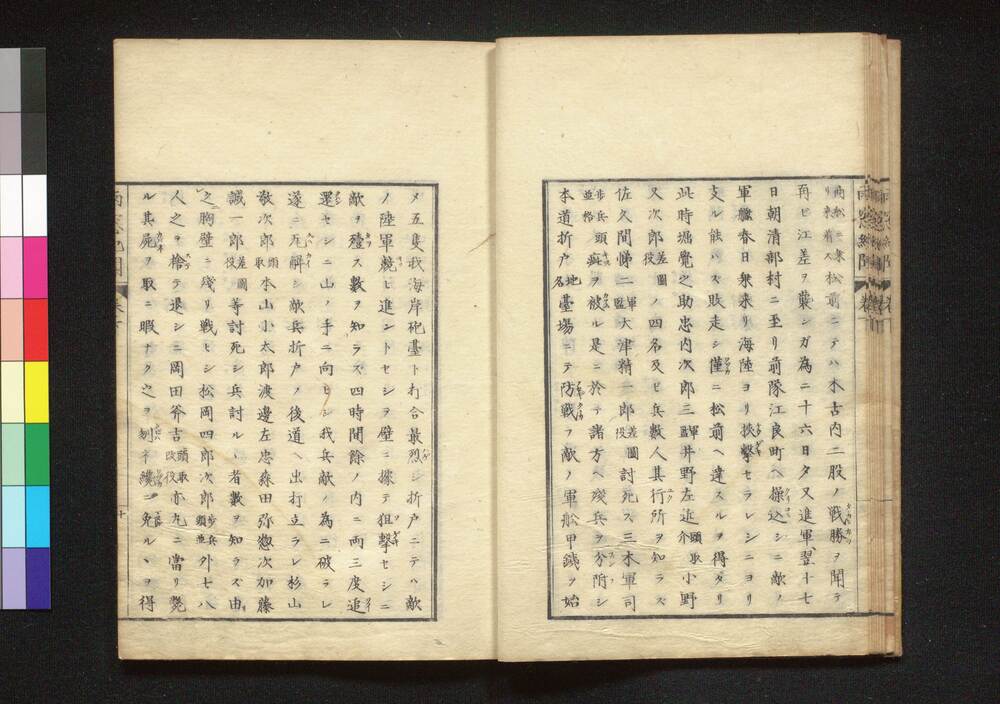 松前ニテハ木古内二股ノ戦勝ヲ聞テ
再ヒ江差ヲ襲シガ為ニ十六日夕又進軍翌十七
日朝清部村ニ至リ前隊江良町ヘ操込シニ敵ノ
軍艦春日衆来リ海陸ヨリ挾撃セラレシニヨリ
支ル能ハス敗走シ僅ニ松前ヘ達スルヲ得タリ
此時堀覺之助忠内次郎三軍監井野左近介頭取小野
又次郎差圖役ノ四名及ヒ兵数人其行所ヲ知ラス
佐久間悌二軍監大津精一郎差圖役討死ス三木軍司
歩兵頭並格痍ヲ被ル是ニ於テ諸方ヘ残兵ヲ分附シ
本道折戸地名臺場ニテ防戦ヲ敵ノ軍舩甲鐵ヲ始
メ五隻我海岸砲臺ト打合最烈シ折戸ニテハ敵
ノ陸軍競ヒ進ントセシヲ壁ニ據テ狙撃セシニ
敵ヲ殪ス數ヲ知ラス四時間餘ノ内ニ両三度追
還セシニ山ノ手ニ向ヒシ我兵敵ノ為ニ破ラレ
遂ニ瓦解シ敵兵折戸ノ後道ヘ出打立ラレ杉山
敬次郎頭取本山小太郎渡邊左忠森田弥惣次加藤
誠一郎差圖役等討死シ兵討ルヽ者數ヲ知ラズ由
之胸壁ニ殘リ戦ヒシ松岡四郎次郎歩兵頭並外七八
人之ヲ捨テ退シニ岡田斧吉頭取改役亦丸ニ當リ斃
ル其屍ヲ取ニ暇ナク之ヲ刎子纔ニ免ルヽヲ得